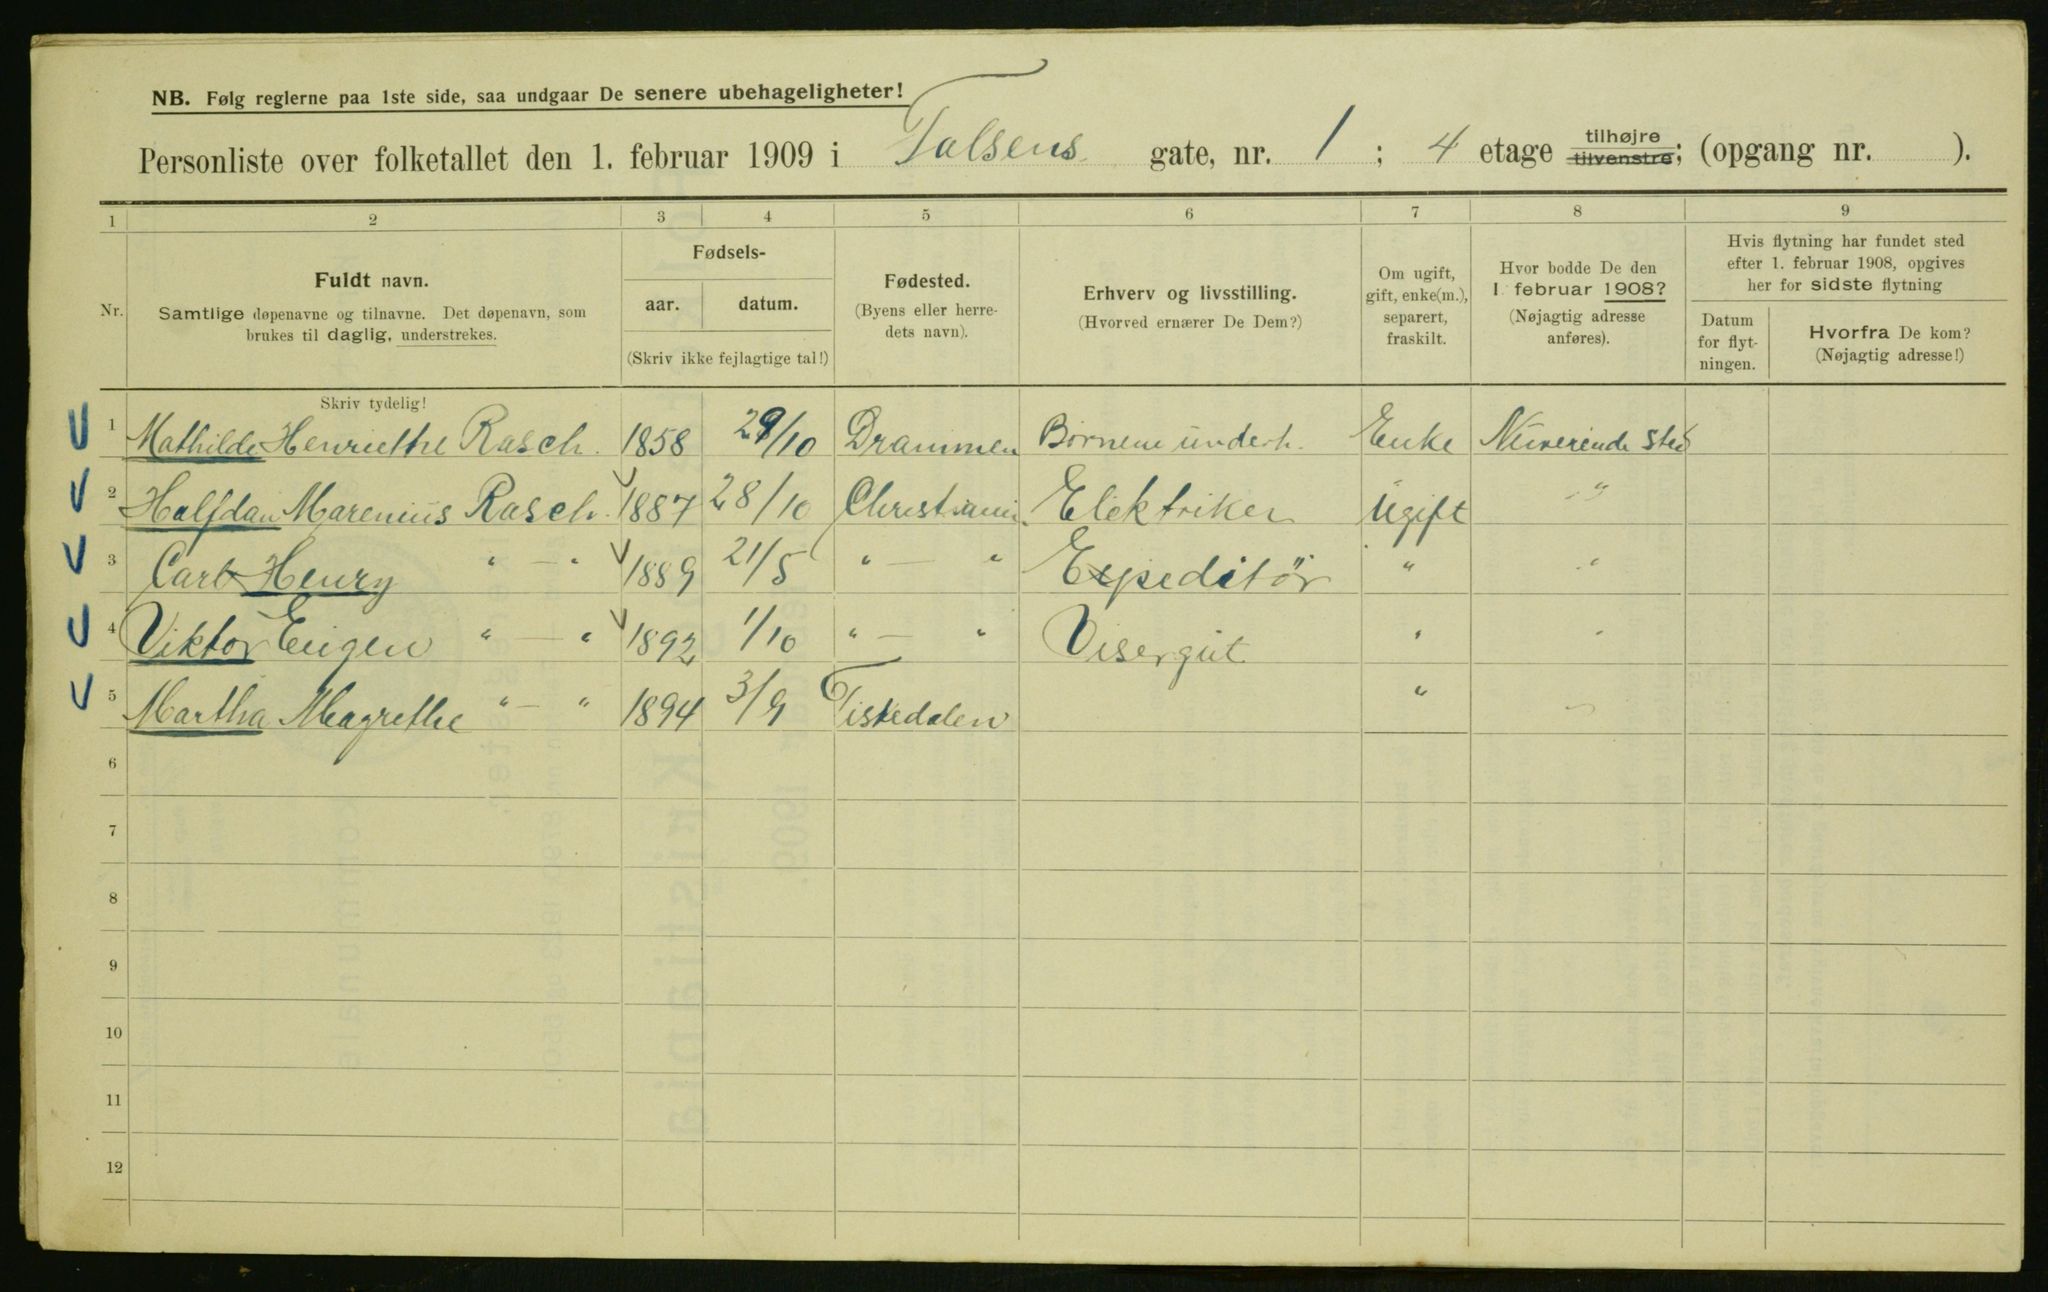 NB. Følg reglerne paa 1ste side, saa undgaar De senere ubehageligheter!
Personliste over folketallet den 1. februar 1909 i Falsens gate, nr. 1 ; 4 etage tilhøjre tilvenstre; (opgang nr. ).
1 2 3 4 5 6 7 8 9
Nr.
Fuldt navn.
Samtlige døpenavne og tilnavne. Det døpenavn, som
brukes til daglig, understrekes.
Skriv tydelig!
Fødsels-
aar. datum.
(Skriv ikke fejlagtige tal!)
Fødested.
(Byens eller herre-
dets navn).
Erhverv og livsstilling.
(Hvorved ernærer De Dem?)
Om ugift,
gift, enke(m.),
separert,
fraskilt.
Hvor bodde De den
1 februar 1908?
(Nøjagtig adresse
anføres).
Hvis flytning har fundet sted
efter 1. februar 1908, opgives
her for sidste flytning
Datum
for flyt-
ningen.
Hvorfra De kom?
(Nøjagtig adresse!)
1 Mathilde Henriethe Rasch. 1858 29/10 Drammen Børnene underh. Enke Nuverende sted
2 Halfdan Marenius Rasch. 1887 28/10 Christiania Elektriker Ugift "
3 Carl Henry " — " 1889 21/5 " — " Expeditør " "
4 Viktor Eugen " — " 1892 1/10 " — " Visergut " "
5 Martha Magrethe " — " 1894 3/9 Tistedalen " "
6
7
8
9
10
11
12